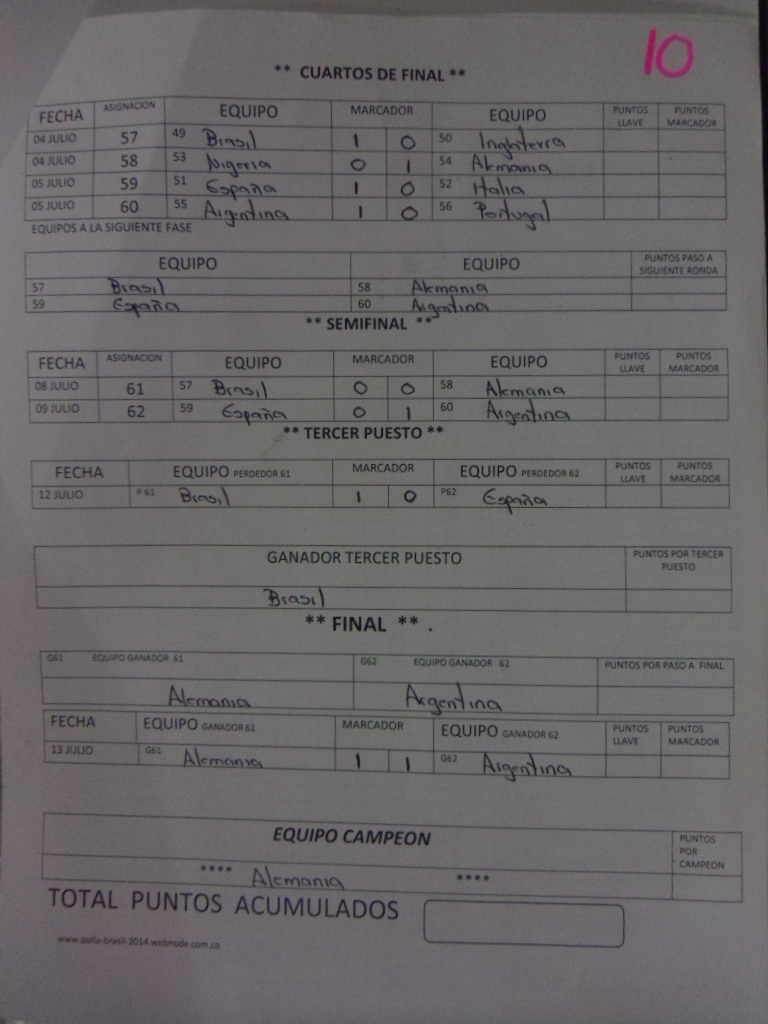 10
** CUARTOS DE FINAL **
FECHA ASIGNACION EQUIPO MARCADOR EQUIPO PUNTOS LLAVE PUNTOS MARCADOR
04 JULIO 57 49 Brasil 1 0 50 Inglaterra
04 JULIO 58 53 Nigeria 0 1 54 Alemania
05 JULIO 59 51 España 1 0 52 Italia
05 JULIO 60 55 Argentina 1 0 56 Portugal
EQUIPOS A LA SIGUIENTE FASE
EQUIPO EQUIPO PUNTOS PASO A SIGUIENTE RONDA
57 Brasil 58 Alemania
59 España 60 Argentina
** SEMIFINAL **
FECHA ASIGNACION EQUIPO MARCADOR EQUIPO PUNTOS LLAVE PUNTOS MARCADOR
08 JULIO 61 57 Brasil 0 0 58 Alemania
09 JULIO 62 59 España 0 1 60 Argentina
** TERCER PUESTO **
FECHA EQUIPO PERDEDOR 61 MARCADOR EQUIPO PERDEDOR 62 PUNTOS LLAVE PUNTOS MARCADOR
12 JULIO P 61 Brasil 1 0 P62 España
GANADOR TERCER PUESTO PUNTOS POR TERCER PUESTO
Brasil
** FINAL ** .
G61 EQUIPO GANADOR 61 G62 EQUIPO GANADOR 62 PUNTOS POR PASO A FINAL
Alemania Argentina
FECHA EQUIPO GANADOR 61 MARCADOR EQUIPO GANADOR 62 PUNTOS LLAVE PUNTOS MARCADOR
13 JULIO G61 Alemania 1 1 G62 Argentina
EQUIPO CAMPEON PUNTOS POR CAMPEON
**** Alemania ****
TOTAL PUNTOS ACUMULADOS
www.polla-brasil-2014.webnode.com.co